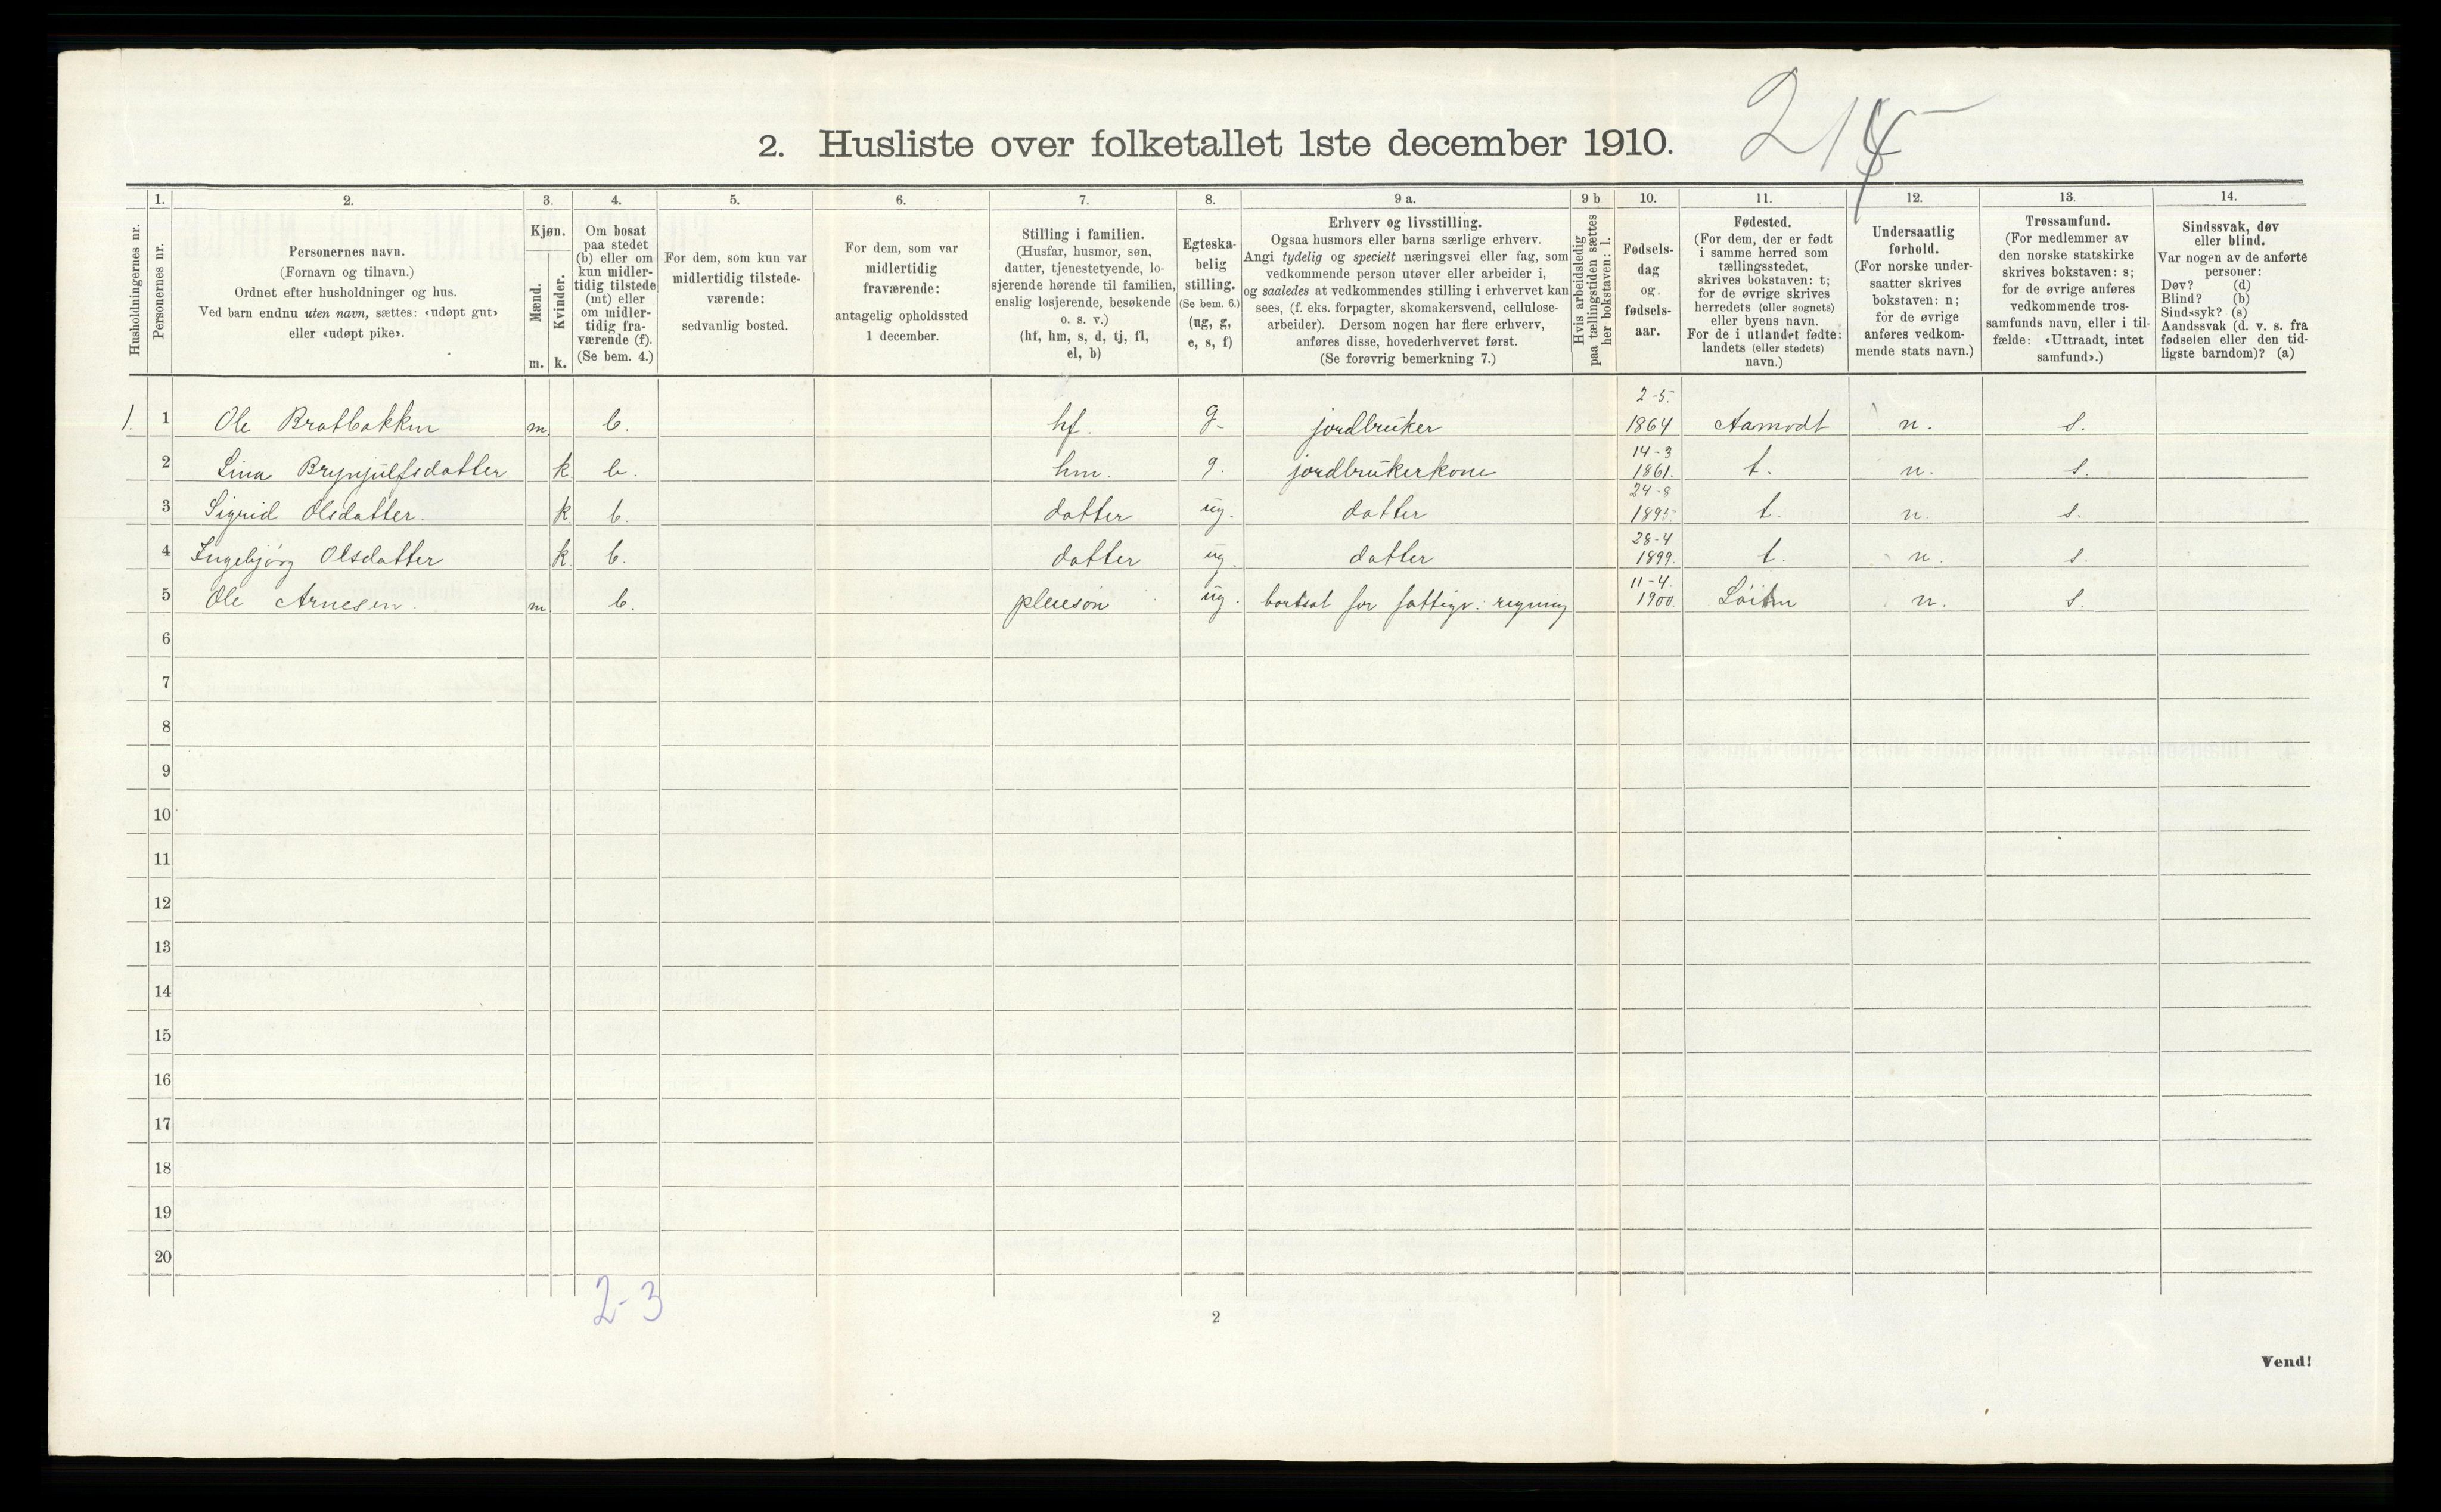 2. Husliste over folketallet 1ste december 1910.
Husholdningernes nr.
1.
Personernes nr.
2.
Personernes navn.
(Fornavn og tilnavn.)
Ordnet efter husholdninger og hus.
Ved barn endnu uten navn, sættes: «udøpt gut»
eller «udøpt pike».
3.
Kjøn.
Mænd.
Kvinder.
m. k.
4.
Om bosat
paa stedet
(b) eller om
kun midler-
tidig tilstede
(mt) eller
om midler-
tidig fra-
værende (f).
(Se bem. 4.)
5.
For dem, som kun var
midlertidig tilstede-
værende:
sedvanlig bosted.
6.
For dem, som var
midlertidig
fraværende:
antagelig opholdssted
1 december.
7.
Stilling i familien.
(Husfar, husmor, søn,
datter, tjenestetyende, lo-
sjerende hørende til familien,
enslig losjerende, besøkende
o. s. v.)
(hf, hm, s, d, tj, fl,
el, b)
8.
Egteska-
belig
stilling.
(Se bem. 6.)
(ug, g,
e, s, f)
9 a.
Erhverv og livsstilling.
Ogsaa husmors eller barns særlige erhverv.
Angi tydelig og specielt næringsvei eller fag, som
vedkommende person utøver eller arbeider i,
og saaledes at vedkommendes stilling i erhvervet kan
sees, (f. eks. forpagter, skomakersvend, cellulose-
arbeider). Dersom nogen har flere erhverv,
anføres disse, hovederhvervet først.
(Se forøvrig bemerkning 7.)
9 b
Hvis arbeidsledig
paa tællingstiden sættes
her bokstaven: l.
10.
Fødsels-
dag
og
fødsels-
aar.
11.
Fødested.
(For dem, der er født
i samme herred som
tællingsstedet,
skrives bokstaven: t;
for de øvrige skrives
herredets (eller sognets)
eller byens navn.
For de i utlandet fødte:
landets (eller stedets)
navn.)
12.
Undersaatlig
forhold.
(For norske under-
saatter skrives
bokstaven: n;
for de øvrige
anføres vedkom-
mende stats navn.)
13.
Trossamfund.
(For medlemmer av
den norske statskirke
skrives bokstaven: s;
for de øvrige anføres
vedkommende tros-
samfunds navn, eller i til-
fælde: «Uttraadt, intet
samfund».)
14.
Sindssvak, døv
eller blind.
Var nogen av de anførte
personer:
Døv? (d)
Blind? (b)
Sindssyk? (s)
Aandssvak (d. v. s. fra
fødselen eller den tid-
ligste barndom)? (a)
1. 1 Ole Bratbakken m. b. hf. g. jordbruker 2-5. 1864 Aamodt n. s.
2 Lina Brynjulfsdatter k. b. hm. g. jordbrukerkone 14-3 1861. t. n. s.
3 Sigrid Olsdatter. k. b. datter ug. datter 24-8 1895 t. n. s.
4 Ingebjörg Olsdatter k. b. datter ug. datter 28-4 1899. t. n. s.
5 Ole Arnesen. m. b. pleieson ug. bortsat for fattigv. regning 11-4. 1900. Löiten n. s.
6
7
8
9
10
11
12
13
14
15
16
17
18
19
20
2-3
2
Vend!